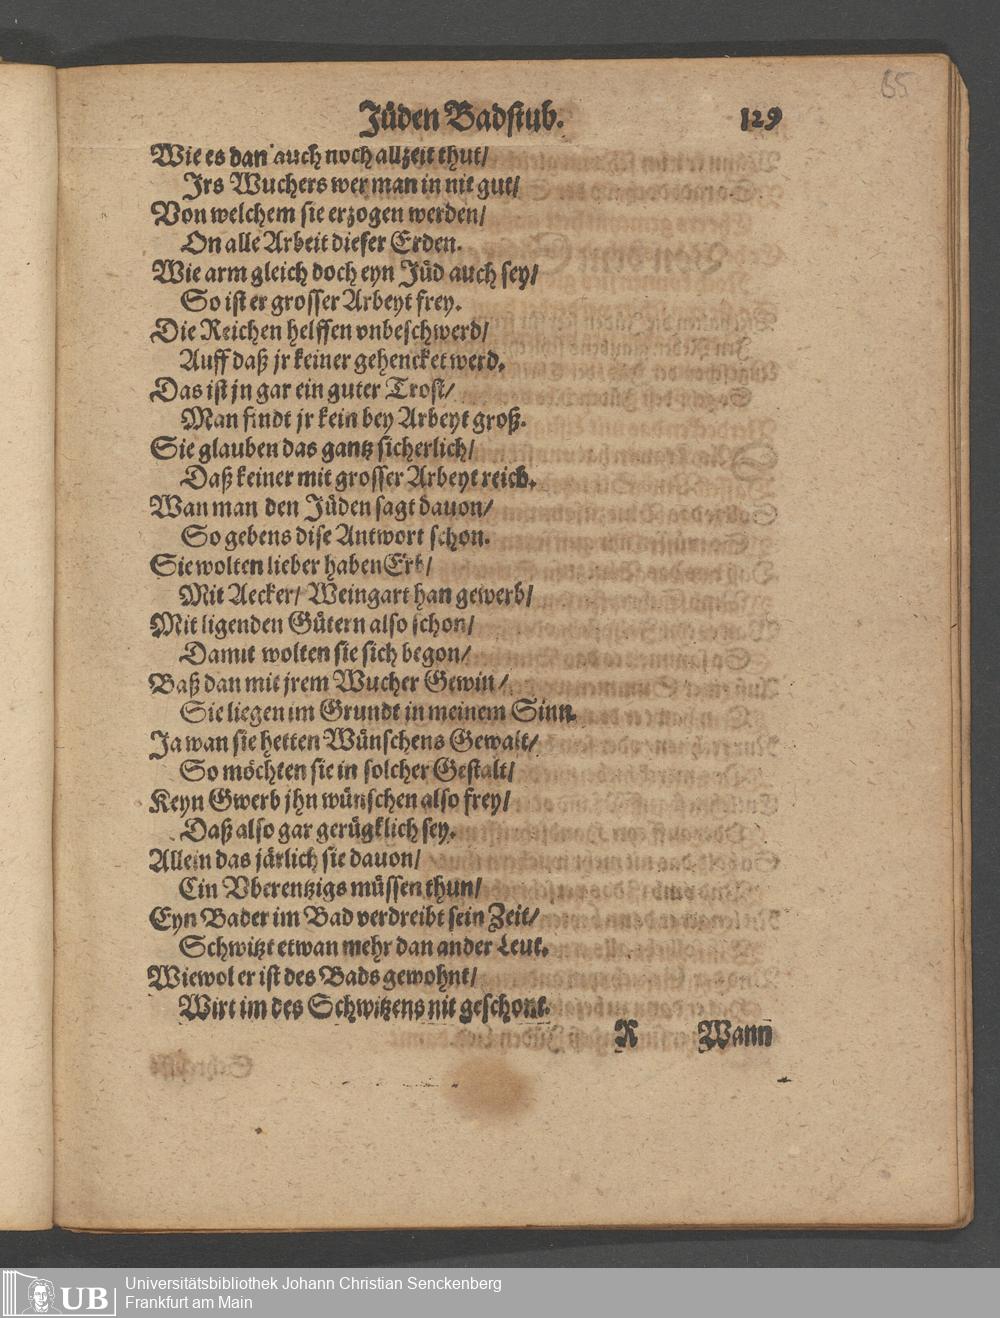 65
Jüden Badstub. 129
Wie es dan auch noch allzeit thut/
Jrs Wuchers wer man in nit gut/
Von welchem sie erzogen werden/
On alle Arbeit dieser Erden.
Wie arm gleich doch eyn Jüd auch sey/
So ist er grosser Arbeyt frey.
Die Reichen helffen vnbeschwerd/
Auff daß jr keiner gehencket werd.
Das ist jn gar ein guter Trost/
Man findt jr kein bey Arbeyt groß.
Sie glauben das gantz sicherlich/
Daß keiner mit grosser Arbeyt reich.
Wan man den Jüden sagt dauon/
So gebens dise Antwort schon.
Sie wolten lieber haben Erb/
Mit Aecker/ Weingart han gewerb/
Mit ligenden Gütern also schon/
Damit wolten sie sich begon/
Baß dan mit jrem Wucher Gewin/
Sie liegen im Grundt in meinem Sinn.
Ja wan sie hetten Wünschens Gewalt/
So möchten sie in solcher Gestalt/
Keyn Gwerb jhn wünschen also frey/
Daß also gar gerügklich sey.
Allein das järlich sie dauon/
Ein Vberentzigs müssen thun/
Eyn Bader im Bad verdreibt sein Zeit/
Schwitzt etwan mehr dan ander Leut.
Wiewol er ist des Bads gewohnt/
Wirt im des Schwitzens nit geschont.
R Wann
UB Universitätsbibliothek Johann Christian Senckenberg
Frankfurt am Main